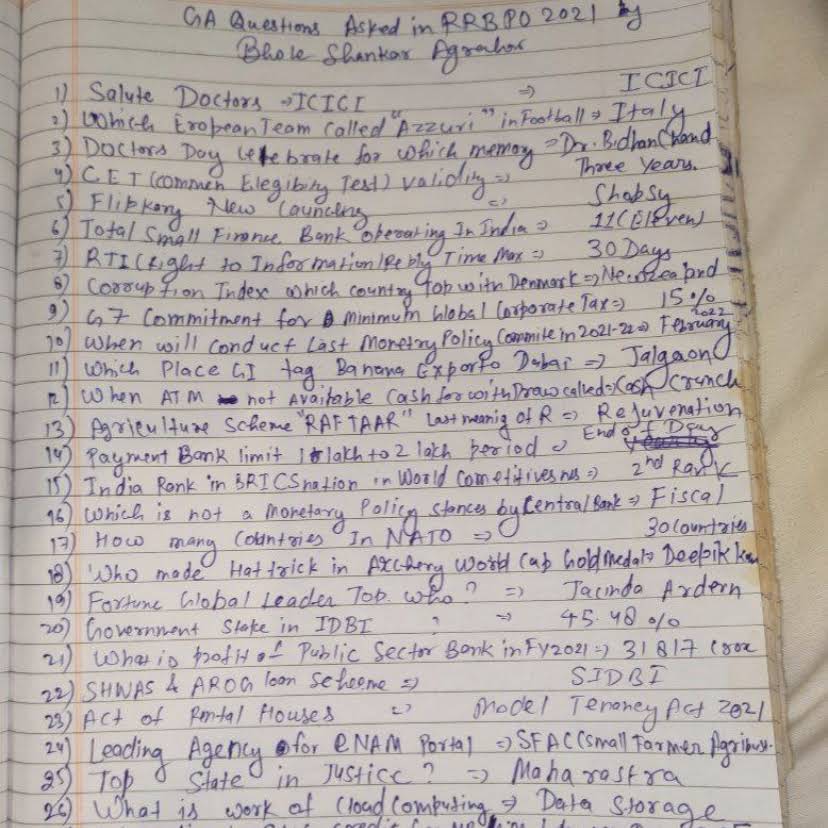 GA Questions Asked in RRBPO 2021 by
Bhole Shankar Agrahar
1) Salute Doctors →ICICI ⇒ ICICI
2) Which Eropean Team called "Azzuri" in Football ⇒ Italy
3) Doctors Day Celebrate for which memory ⇒ Dr. Bidhan Chand
4) C.E.T (commen Elegibity Test) validity ⇒ Three Years.
5) Flipkary New Launching ⇒ Shopsy
6) Total Small Finance Bank operating In India ⇒ 11 (Eleven)
7) RTI (Right to Information) Reply Time Max ⇒ 30 Days
8) Corruption Index which country Top with Denmark ⇒ Newzealand
9) G7 Commitment for Minimum Global Corporate Tax ⇒ 15%
10) When will conduct Last Monetry Policy Commite in 2021-22 ⇒ February 2022
11) Which Place GI tag Banana Exporto Dubai ⇒ Jalgaon
12) When ATM not available Cash for withDraw called ⇒ Cash Crunch
13) Agriculture Scheme "RAFTAAR" Last meanig of R ⇒ Rejuvenation
14) Payment Bank limit 1 lakh to 2 lakh period ⇒ End of Day
15) India Rank in BRICS nation in World Cometitivesnes ⇒ 2nd Rank
16) Which is not a Monetary Policy stances by Central Bank ⇒ Fiscal
17) How many Countries In NATO ⇒ 30 Countries
18) Who made Hattrick in Archery World Cup Gold medal ⇒ Deepik Kum
19) Fortune Global Leader Top. who? ⇒ Jacinda Ardern
20) Government Stake in IDBI ? ⇒ 45.48 %
21) What is profit of Public Sector Bank in FY2021 ⇒ 31817 Cror
22) SHWAS & AROG loan Scheeme ⇒ SIDBI
23) Act of Rental Houses ⇒ Model Tenancy Act 2021
24) Leading Agency for eNAM Portal ⇒ SFAC (Small Farmer Agribus.
25) Top State in Justice? ⇒ Maharastra
26) What is work of Cloud Computing ⇒ Data Storage